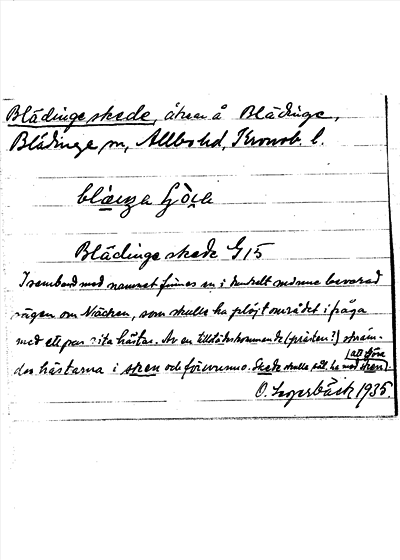 Blädingeskede, åker å Blädinge,
Blädinge sn, Allbo hd, Kronob. l.
Blädinge skede G15
I samband med namnet finnes en i trakten ännu bevarad
sägen om Näcken, som skulle ha plöjt området i fråga
med ett par vita hästar. Av en tillstädeskommande (prästen?) skräm-
des hästarna i sken och försvunno. Skede skulle så ha med sken
(att göra
O. Lagerbäck 1935.